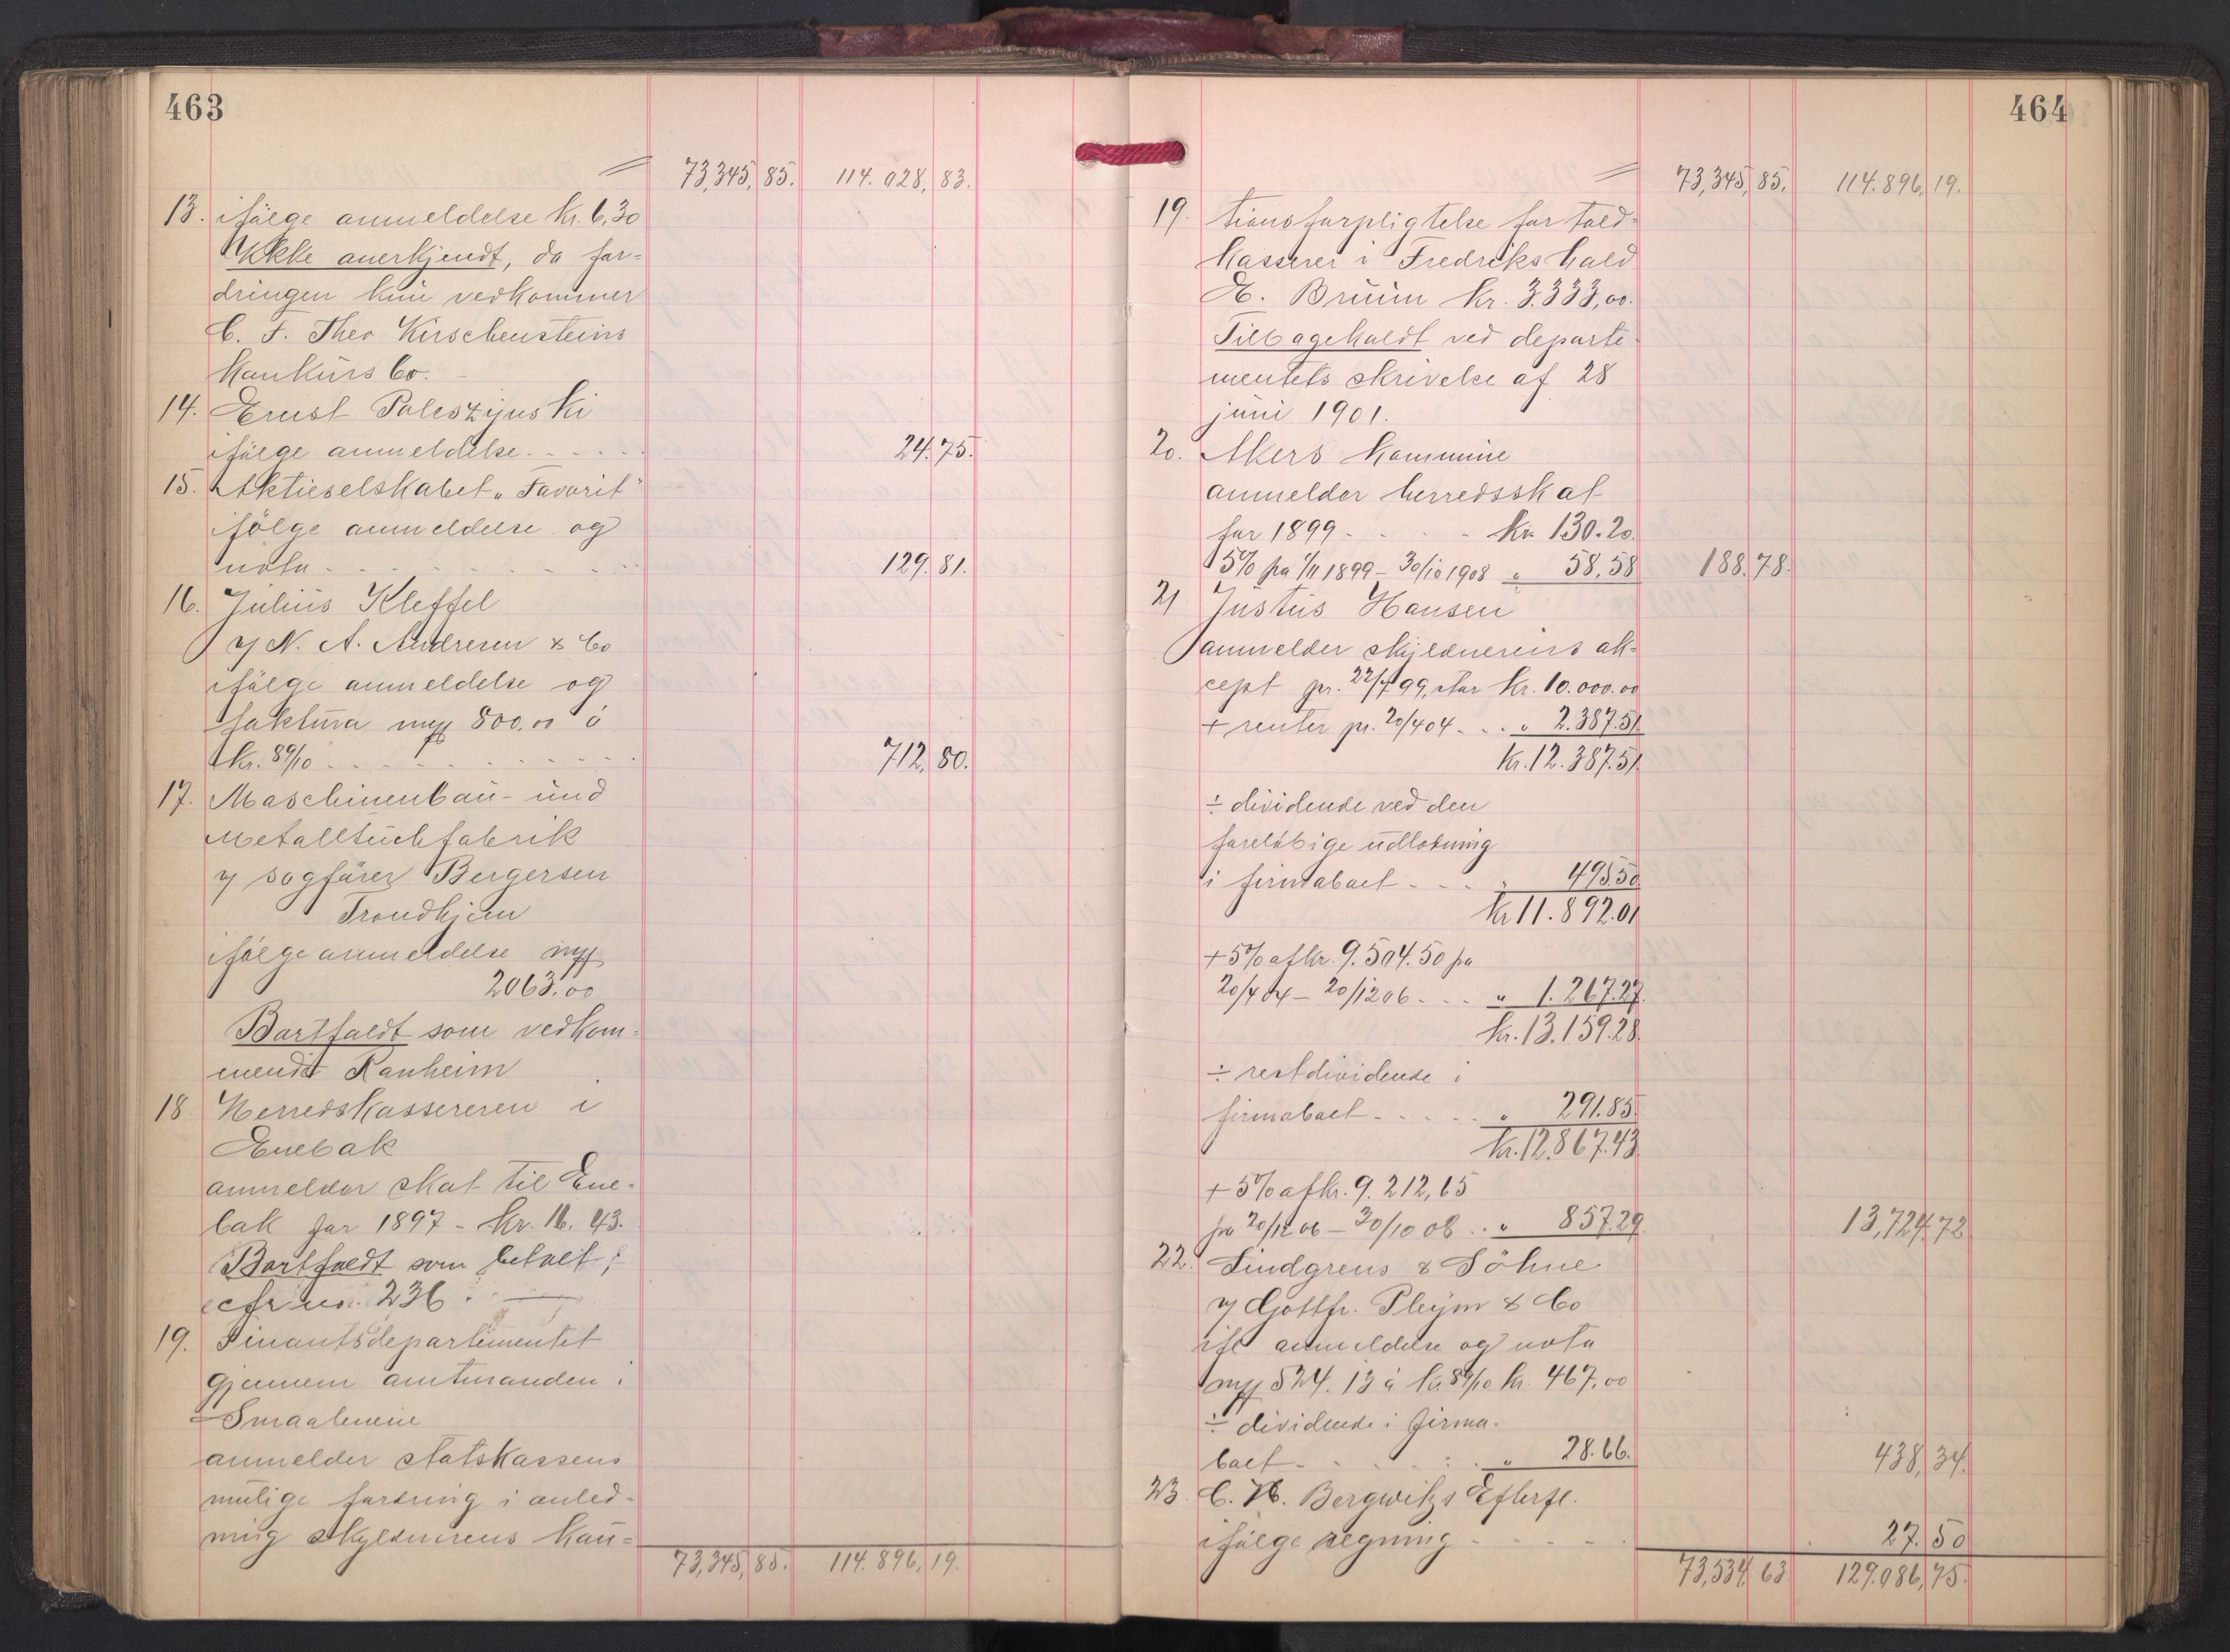 463
73,345,85. 114.028,83.
13. ifölge anmeldelse kr. 6,30
Ikke anerkjendt, da for-
dringen kun vedkommer
C. F. Theo Kirschensteins
konkurs bo.
14. Ernst Paleszijnski
ifölge anmeldelse. - - - - . 24.75.
15. Aktieselskabet „Favorit"
ifölge anmeldelse og
nota - - - - - - - - 129.81.
16. Julius Kleffel
v/ N. A. Andresen & Co
ifölge anmeldelse og
faktura mⱥ 800,00 á
kr. 89/10 - - - - - - - - 712,80.
17. Maschinenbau- und
Metalltuchfabrik
v/ sagförer Bergersen
Trondhjem
ifölge anmeldelse mⱥ
2063.00
Bortfaldt som vedkom-
mende Ranheim
18. Herredskassereren i
Enebak
anmelder skat til Ene-
bak for 1897 - kr. 16.43.
Bortfaldt som betalt,
cfr. no. 236.
19. Finantsdepartementet
gjennem amtmanden i
Smaalenene
anmelder statskassens
mulige fordring i anled-
ning skyldnerens kau-
73,345,85. 114.896,19.
464
73,345,85. 114.896,19.
19. tionsforpligtelse for told-
kasserer i Fredrikshald
E. Bruun kr. 3.333,00.
Tilbageholdt ved departe-
mentets skrivelse af 28
juni 1901.
20. Akers kommune
anmelder herredsskat
for 1899 - - - - kr. 130.20.
5% fra 1/11 1899 - 30/10 1908 „ 58,58 188.78.
21 Justus Hansen
anmelder skyldnerens ak-
cept pr. 22/7 99, stor kr. 10.000.00
+ renter pr. 20/4 04 - . . „ 2.387.51.
kr. 12.387.51.
÷ dividende ved den
foreløbige udlodning
i firmaboet - - - „ 495.50
kr 11.892.01
+ 5% af kr. 9.504.50 fra
20/4 04 - 20/12 06 - . . „ 1.267.27.
kr. 13.159.28.
÷ restdividende i
firmaboet - - - - „ 291.85.
kr. 12.867.43.
+ 5% af kr. 9.212,65
fra 20/12 06 - 30/10 08 . . „ 857.29. 13,724.72
22. Lindgrens & Söhne
v/ Gottfr. Pleÿm & Co
ifl anmeldelse og nota
mⱥ 524.13 á kr. 89/10 kr. 467,00
÷ dividende i firma-
boet - - - - - „ 28.66. 438,34.
23. C. H. Bergwitzs Efterfl.
ifölge regning - - - - 27.50
73,534.63. 129.086,75.